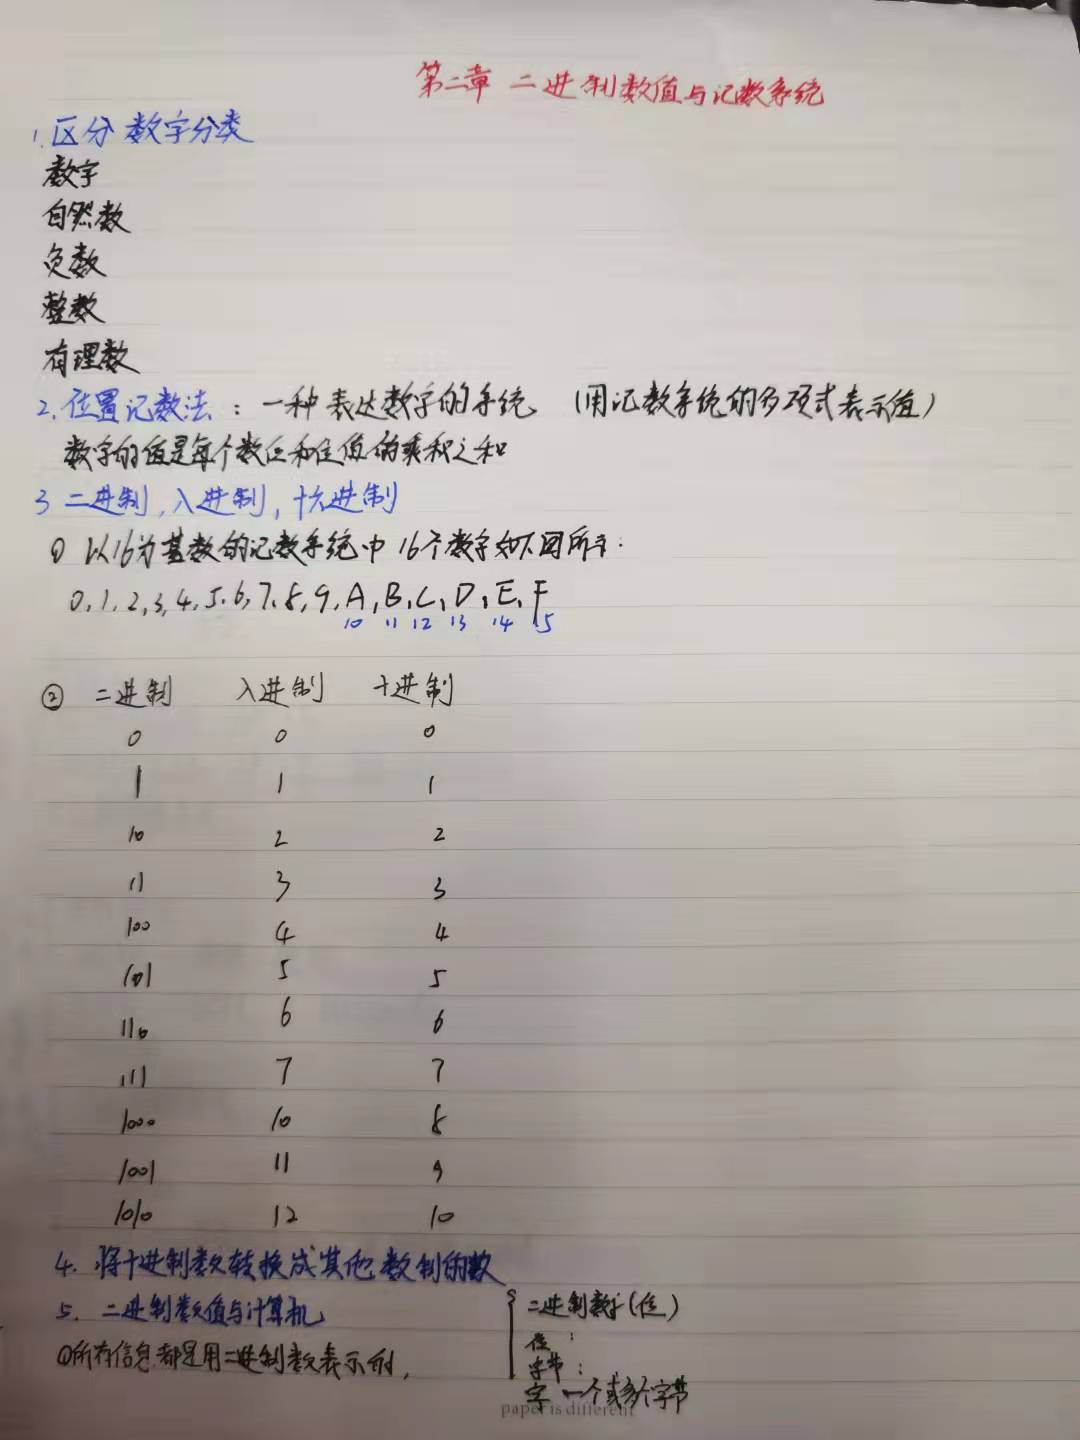 第二章 二进制数值与记数系统
1.区分 数字分类
数字
自然数
负数
整数
有理数
2.位置记数法：一种表达数字的系统 (用记数系统的多项式表示值)
数字的值是每个数位和位值的乘积之和
3 二进制,八进制,十六进制
① 以16为基数的记数系统中 16个数字如下图所示.
0,1,2,3,4,5,6,7,8,9,A,B,C,D,E,F
10 11 12 13 14 15
② 二进制 八进制 十进制
0 0 0
1 1 1
10 2 2
11 3 3
100 4 4
101 5 5
110 6 6
111 7 7
1000 10 8
1001 11 9
1010 12 10
4. 将十进制数转换成其他数制的数
5. 二进制数值与计算机
①所有信息都是用二进制数表示的,
二进制数字(位)
位：
字节：
字 一个或多个字节
paper is different